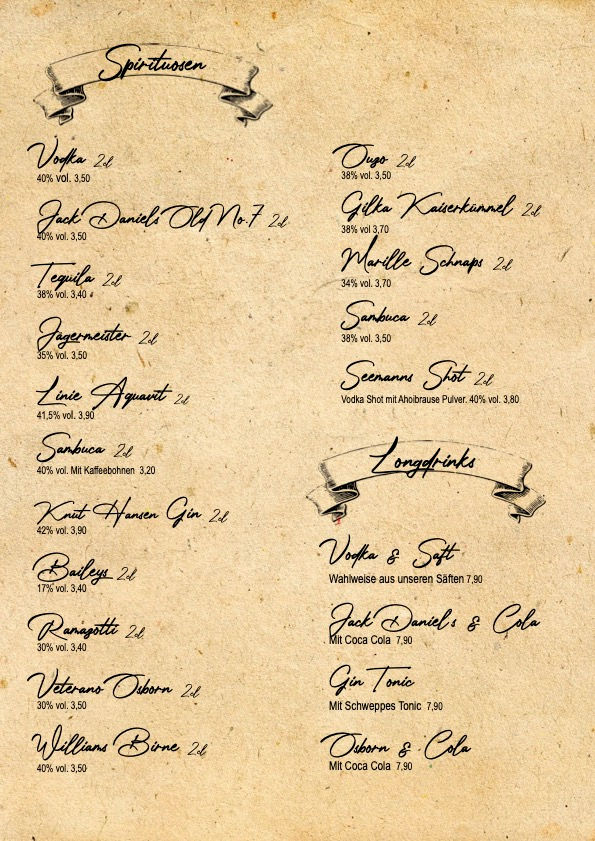 Spirituosen
Vodka 2cl
40% vol. 3,50
Jack Daniels Old No.7 2cl
40% vol. 3,50
Tequila 2cl
38% vol. 3,40
Jägermeister 2cl
35% vol. 3,50
Linie Aquavit 2cl
41,5% vol. 3,90
Sambuca 2cl
40% vol. Mit Kaffeebohnen 3,20
Knut Hansen Gin 2cl
42% vol. 3,90
Baileys 2cl
17% vol. 3,40
Ramazotti 2cl
30% vol. 3,40
Veterano Osborn 2cl
30% vol. 3,50
Williams Birne 2cl
40% vol. 3,50
Ouzo 2cl
38% vol. 3,50
Gilka Kaiserkümmel 2cl
38% vol 3,70
Marille Schnaps 2cl
34% vol. 3,70
Sambuca 2cl
38% vol. 3,50
Seemanns Shot 2cl
Vodka Shot mit Ahoibrause Pulver. 40% vol. 3,80
Longdrinks
Vodka & Saft
Wahlweise aus unseren Säften 7,90
Jack Daniel's & Cola
Mit Coca Cola 7,90
Gin Tonic
Mit Schweppes Tonic 7,90
Osborn & Cola
Mit Coca Cola 7,90